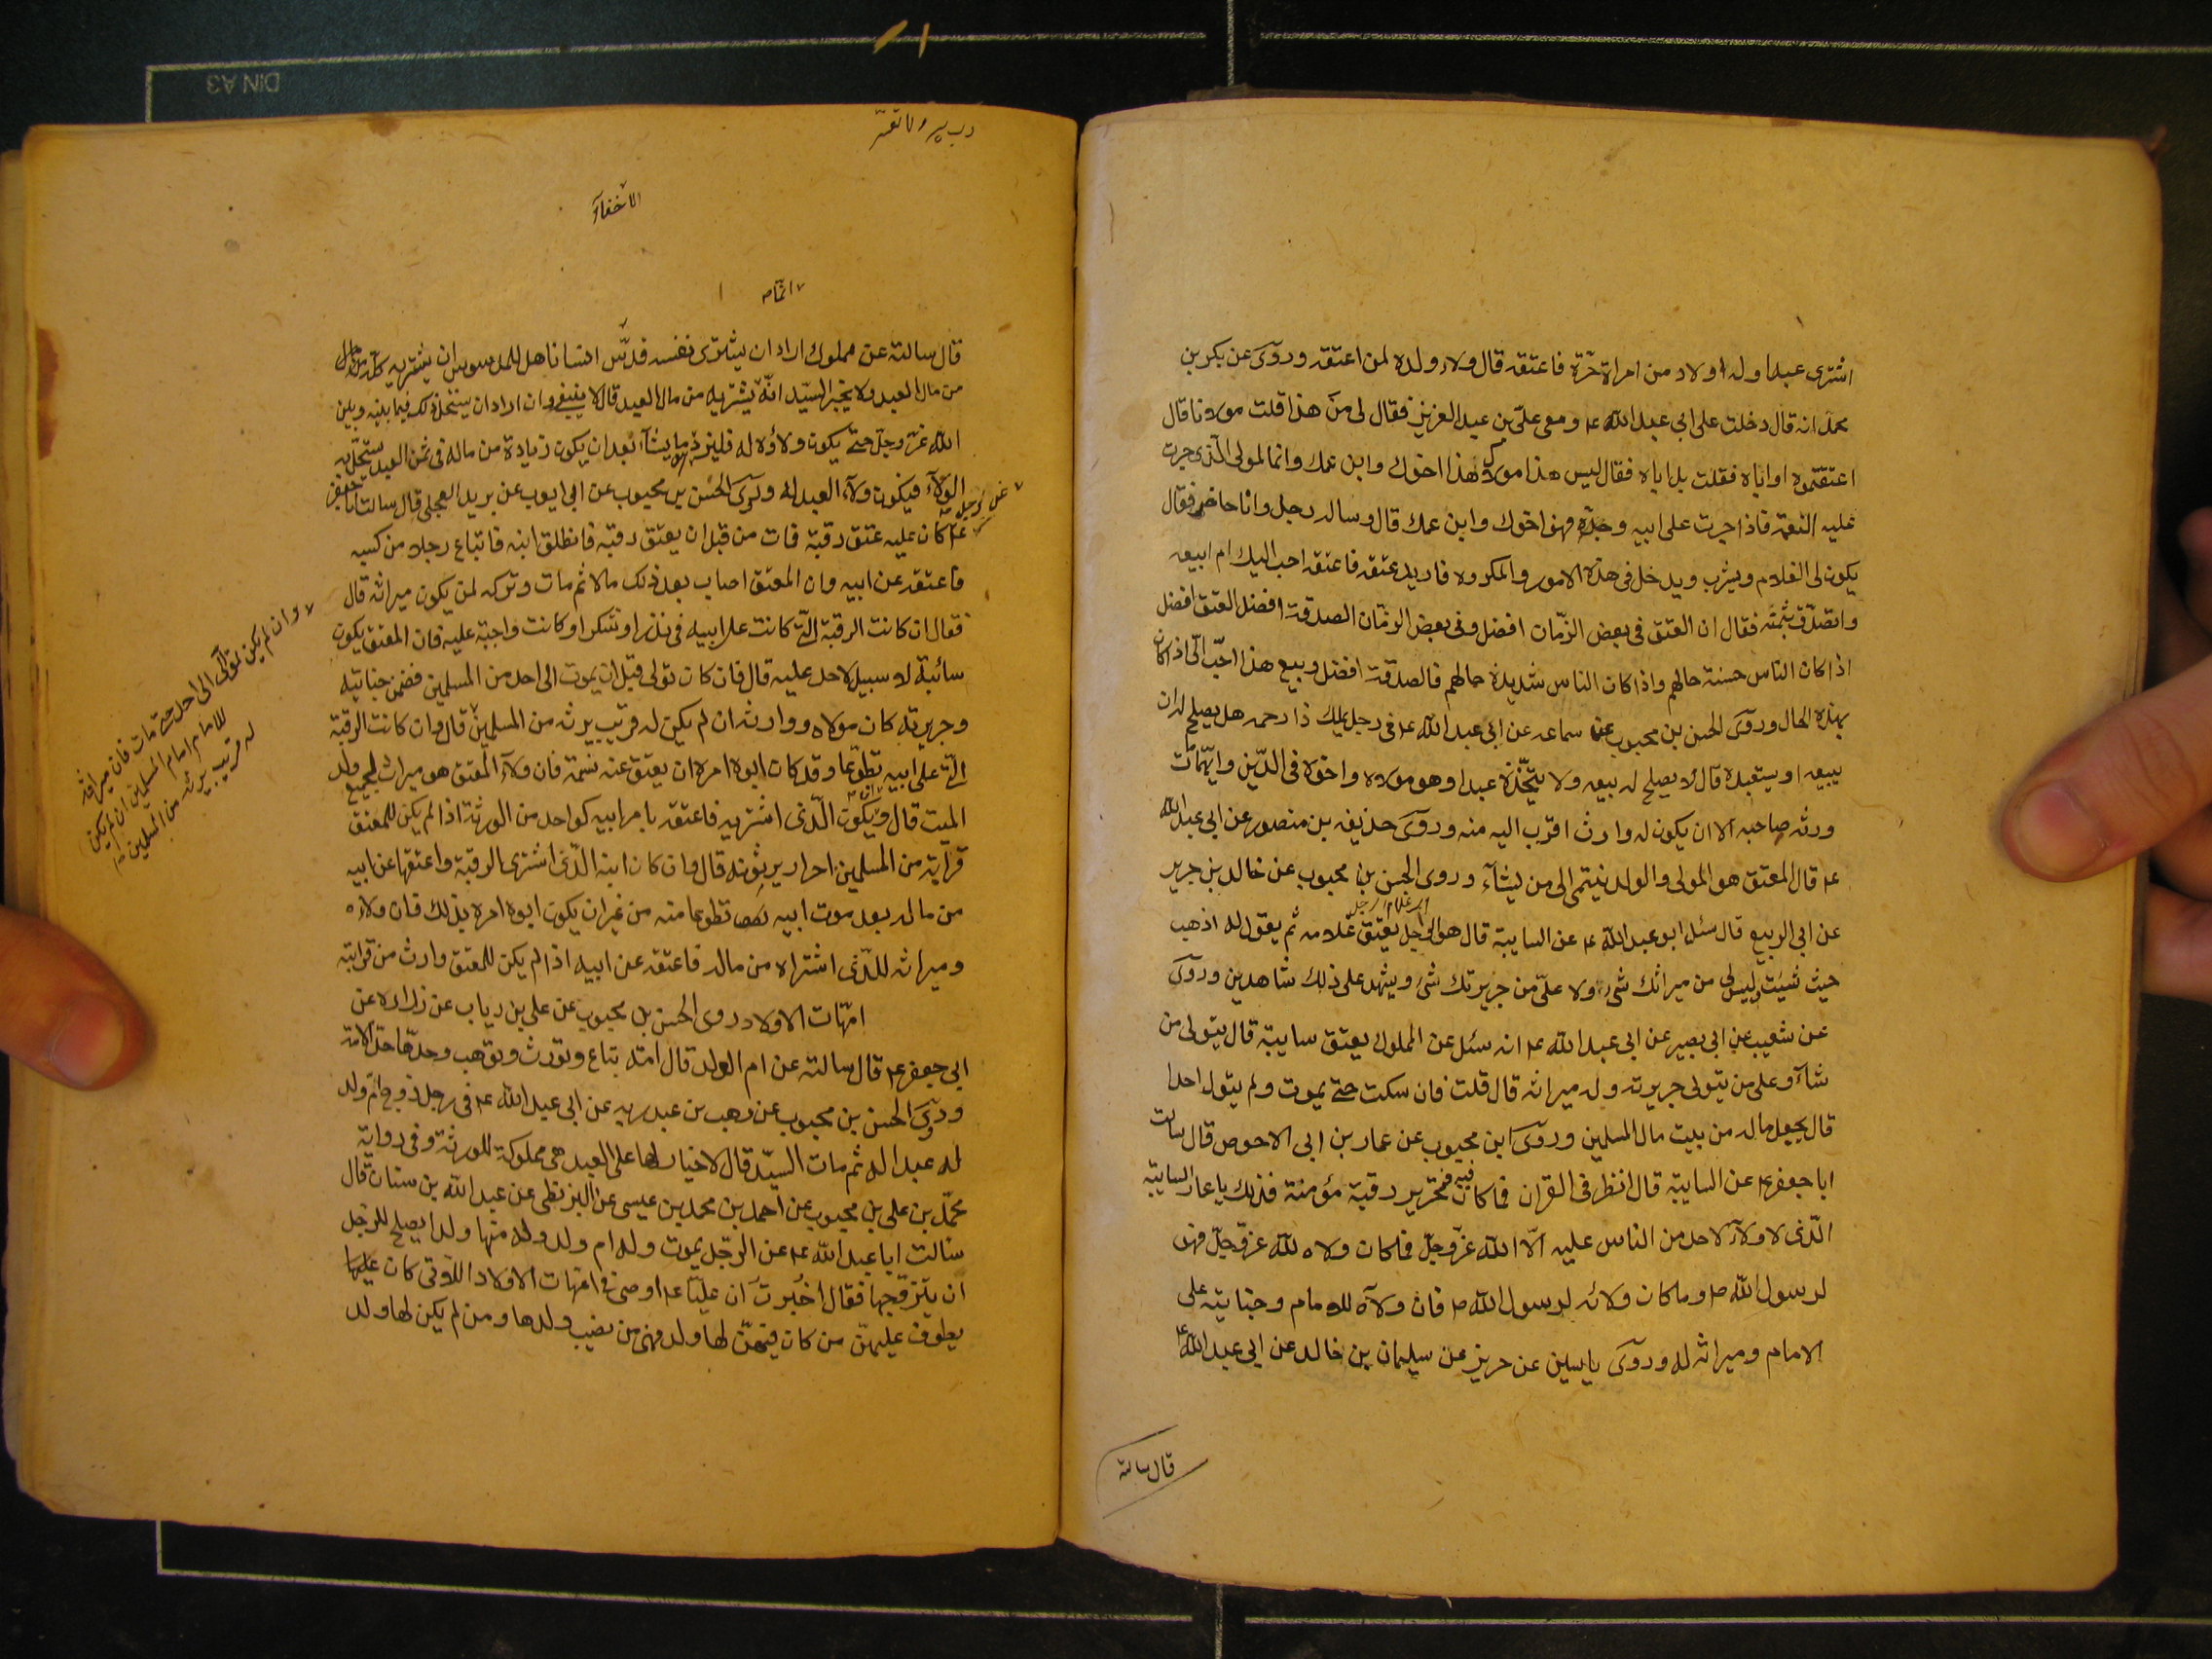 اشترى عبدا وله اولاد من امراة حرّة فاعتقه قال ولاء ولده لمن اعتقه وروى عن بكر بن
محمد انه قال دخلت على ابى عبد الله ع ومعى علىّ بن عبد العزيز فقال لى من هذا قلت مولانا قال
اعتقتموه او اباه فقلت بل اباه فقال ليس هذا مولاك هذا اخوك وابن عمك وانما المولى الذى جرت
عليه النعمة فاذا جرت على ابيه وجدّه فهو اخوك وابن عمك قال وساله رجل وانا حاضر فقال
يكون لى الغلام ويشرب ويدخل فى هذه الامور والمكروه فاريد عتقه فاعتقه احب اليك ام ابيعه
واتصدّق بثمنه فقال ان العتق فى بعض الزمان افضل وفى بعض الزمان الصدقة افضل العتق افضل
اذا كان الناس حسنة حالهم واذا كان الناس شديدة حالهم فالصدقة افضل وبيع هذا احبّ الىّ اذا كان
بهذه الحال وروى الحسن بن محبوب عن سماعه عن ابى عبد الله ع فى رجل يملك ذا رحمه هل يصلح له ان
يبيعه او يستعبده قال لا يصلح له بيعه ولا يتخذه عبدا وهو مولاه واخوه فى الدين وايّهما مات
ورثه صاحبه الا ان يكون له وارث اقرب اليه منه وروى حذيفه بن منصور عن ابى عبد الله
ع قال المعتق هو المولى والولد ينتمى الى من يشآء وروى الحسن بن محبوب عن خالد بن جرير
عن ابى الربيع قال سئل ابو عبد الله ع عن السايبة قال هو الرجل يعتق غلامه ثم يقول له اذهب
حيث شئت وليس لى من ميراثك شىء ولا علىّ من جريرتك شىء ويشهد على ذلك شاهدين وروى
عن شعيب عن ابى بصير عن ابى عبد الله ع انه سئل عن المملوك يعتق سايبة قال يتولى من
شآء وعلى من يتولى جريرته وله ميراثه قال قلت فان سكت حتى يموت ولم يتول احدا
قال يجعل ماله من بيت مال المسلمين وروى ابن محبوب عن عمار بن ابى الاحوص قال سالت
ابا جعفر ع عن السايبة قال انظر فى القران فما كان فيه فتحرير رقبة مؤمنة فذلك يا عمار السايبة
الذى لا ولآء لاحد من الناس عليه الّا الله عز وجلّ فما كان ولاه لله عز وجلّ فهو
لرسول الله ص وما كان ولائه لرسول الله ص فان ولآه للامام وجنايته على
الامام وميراثه له وروى ياسين عن حريز عن سليمان بن خالد عن ابى عبد الله ع
قال سالته
الاخفاء
قال سالته عن مملوك اراد ان يشترى نفسه فدسّ انسانا هل للمدسوس ان يشتريه كله من مال
من مال العبد ولا يخبر السيّد انّه يشتريه من مال العبد قال لا ينبغى وان اراد ان يستحل ذلك فيما بينه وبين
الله عزّ وجلّ حتى يكون ولاؤه له فليزد ما يشآء بعد ان يكون زيادة من ماله فى ثمن العبد يستحلّ به
الولآء فيكون ولآء العبد له وروى الحسن بن محبوب عن ابى ايوب عن بريد العجلى قال سالت ابا جعفر
عن رجل
ع كان عليه عتق رقبة فمات من قبل ان يعتق رقبة فانطلق ابنه فابتاع رجلا من كسبه
فاعتقه عن ابيه وان المعتق اصاب بعد ذلك مالا ثم مات وتركه لمن يكون ميراثه قال
فقال ان كانت الرقبة التى كانت على ابيه فى نذر او شكر او كانت واجبة عليه فان المعتق يكون
سائبة لا سبيل لاحد عليه قال فان كان تولى قبل ان يموت الى احد من المسلمين فضمن جنايته
وجريرته كان مولاه ووارثه ان لم يكن له قريب يرثه من المسلمين قال وان كانت الرقبة
التى على ابيه تطوّعا وقد كان ابوه امره ان يعتق عنه نسمة فان ولآء المعتق هو ميراث لجميع ولد
الميت قال ويكون الّذى اشتريه فاعتقه بامر ابيه كواحد من الورثة اذا لم يكن للمعتق
قرابة من المسلمين احرار يرثونه قال وان كان ابنه الذى اشترى الرقبة واعتقها عن ابيه
من ماله بعد موت ابيه تطوعا منه من غير ان يكون ابوه امره بذلك فان ولاءه
وميراثه للذى اشتراه من ماله فاعتقه عن ابيه اذا لم يكن للمعتق وارث من قرابته
امّهات الاولاد روى الحسن بن محبوب عن على بن رياب عن زراره عن
ابى جعفر ع قال سالته عن ام الولد قال امة تباع وتورث وتوهب وحدّها حدّ الامة
وروى الحسن بن محبوب عن وهب بن عبد ربه عن ابى عبد الله ع فى رجل زوج امّ ولد
له عبدا له ثم مات السيّد قال لا خيار لها على العبد هى مملوكة للورثة وفى رواية
محمّد بن على بن محبوب عن احمد بن محمد بن عيسى عن البزنطى عن عبد الله بن سنان قال
سالت ابا عبد الله ع عن الرجل يموت وله ام ولد وله منها ولد ايصلح للرجل
ان يتزوّجها فقال اخبرت ان عليّا ع اوصى فى امّهات الاولاد اللّاتى كان عليها
يطوف عليهن من كان منهنّ لها ولد فهى من نصيب ولدها ومن لم يكن لها ولد
وان لم يكن توالى الى احد حتى مات فان ميراثه
للامام امام المسلمين ان لم يكن
له قريب يرثه من المسلمين
DIN A3